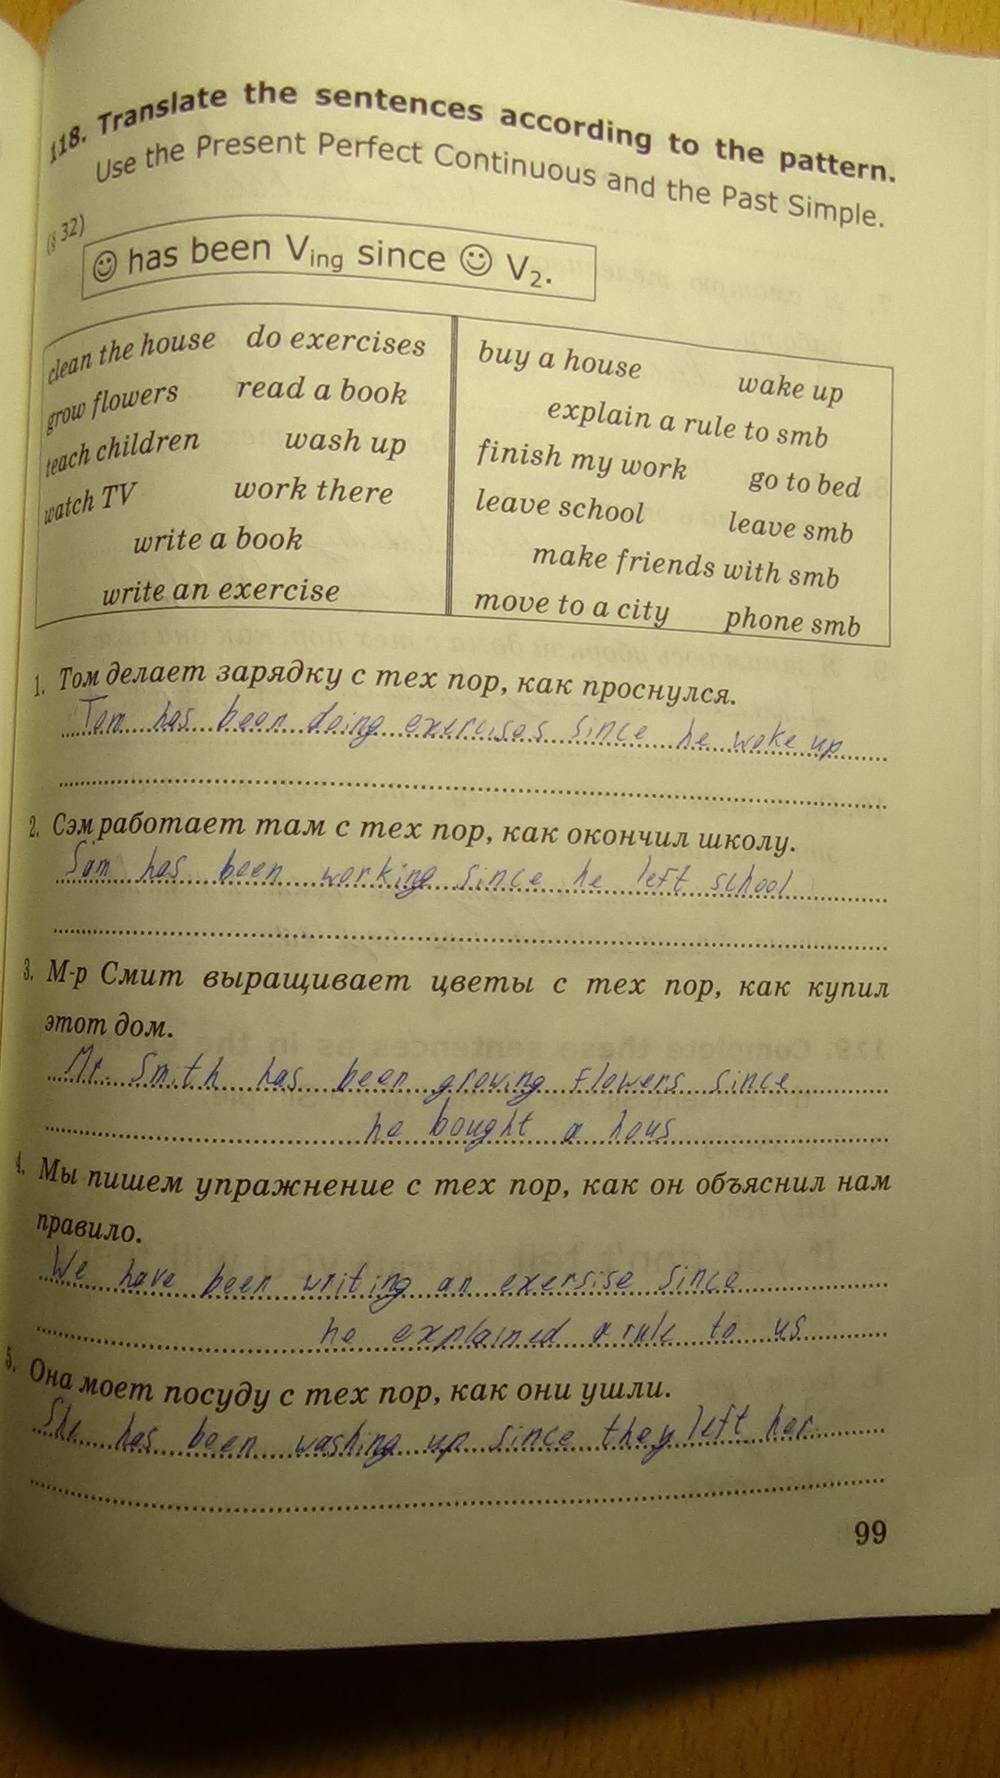 118. Translate the sentences according to the pattern.
Use the Present Perfect Continuous and the Past Simple.
(§ 32)
☺ has been Ving since ☺ V2.
clean the house do exercises
grow flowers read a book
teach children wash up
watch TV work there
write a book
write an exercise
buy a house wake up
explain a rule to smb
finish my work go to bed
leave school leave smb
make friends with smb
move to a city phone smb
1. Том делает зарядку с тех пор, как проснулся.
Tom has been doing exercises since he woke up
2. Сэм работает там с тех пор, как окончил школу.
Sam has been working since he left school
3. М-р Смит выращивает цветы с тех пор, как купил
этот дом.
Mr. Smith has been growing flowers since
he bought a hous
4. Мы пишем упражнение с тех пор, как он объяснил нам
правило.
We have been writing an exersise since
he explained a rule to us
5. Она моет посуду с тех пор, как они ушли.
She has been washing up since they left her.
99